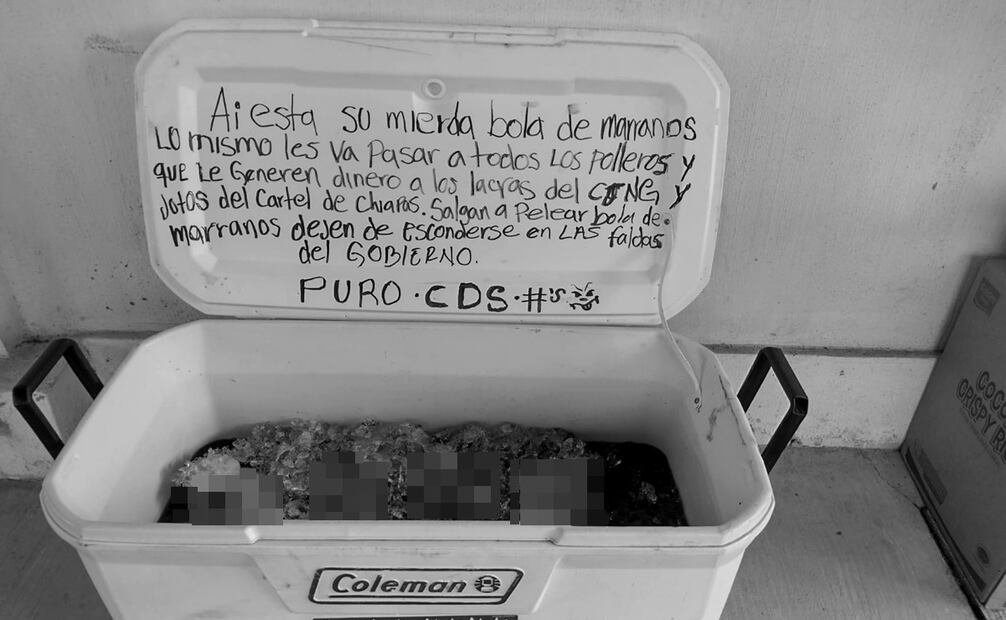 Ai esta su mierda bola de marranos
Lo mismo les va Pasar a todos Los Polleros y
que Le Generen dinero a los lacras del CJNG y
Jotos del Cartel de Chiapas. Salgan a Pelear bola de
marranos dejen de esconderse en LAS faldas
del GOBIERNO.
PURO·CDS·#'s
Coleman
COC
CRISPY